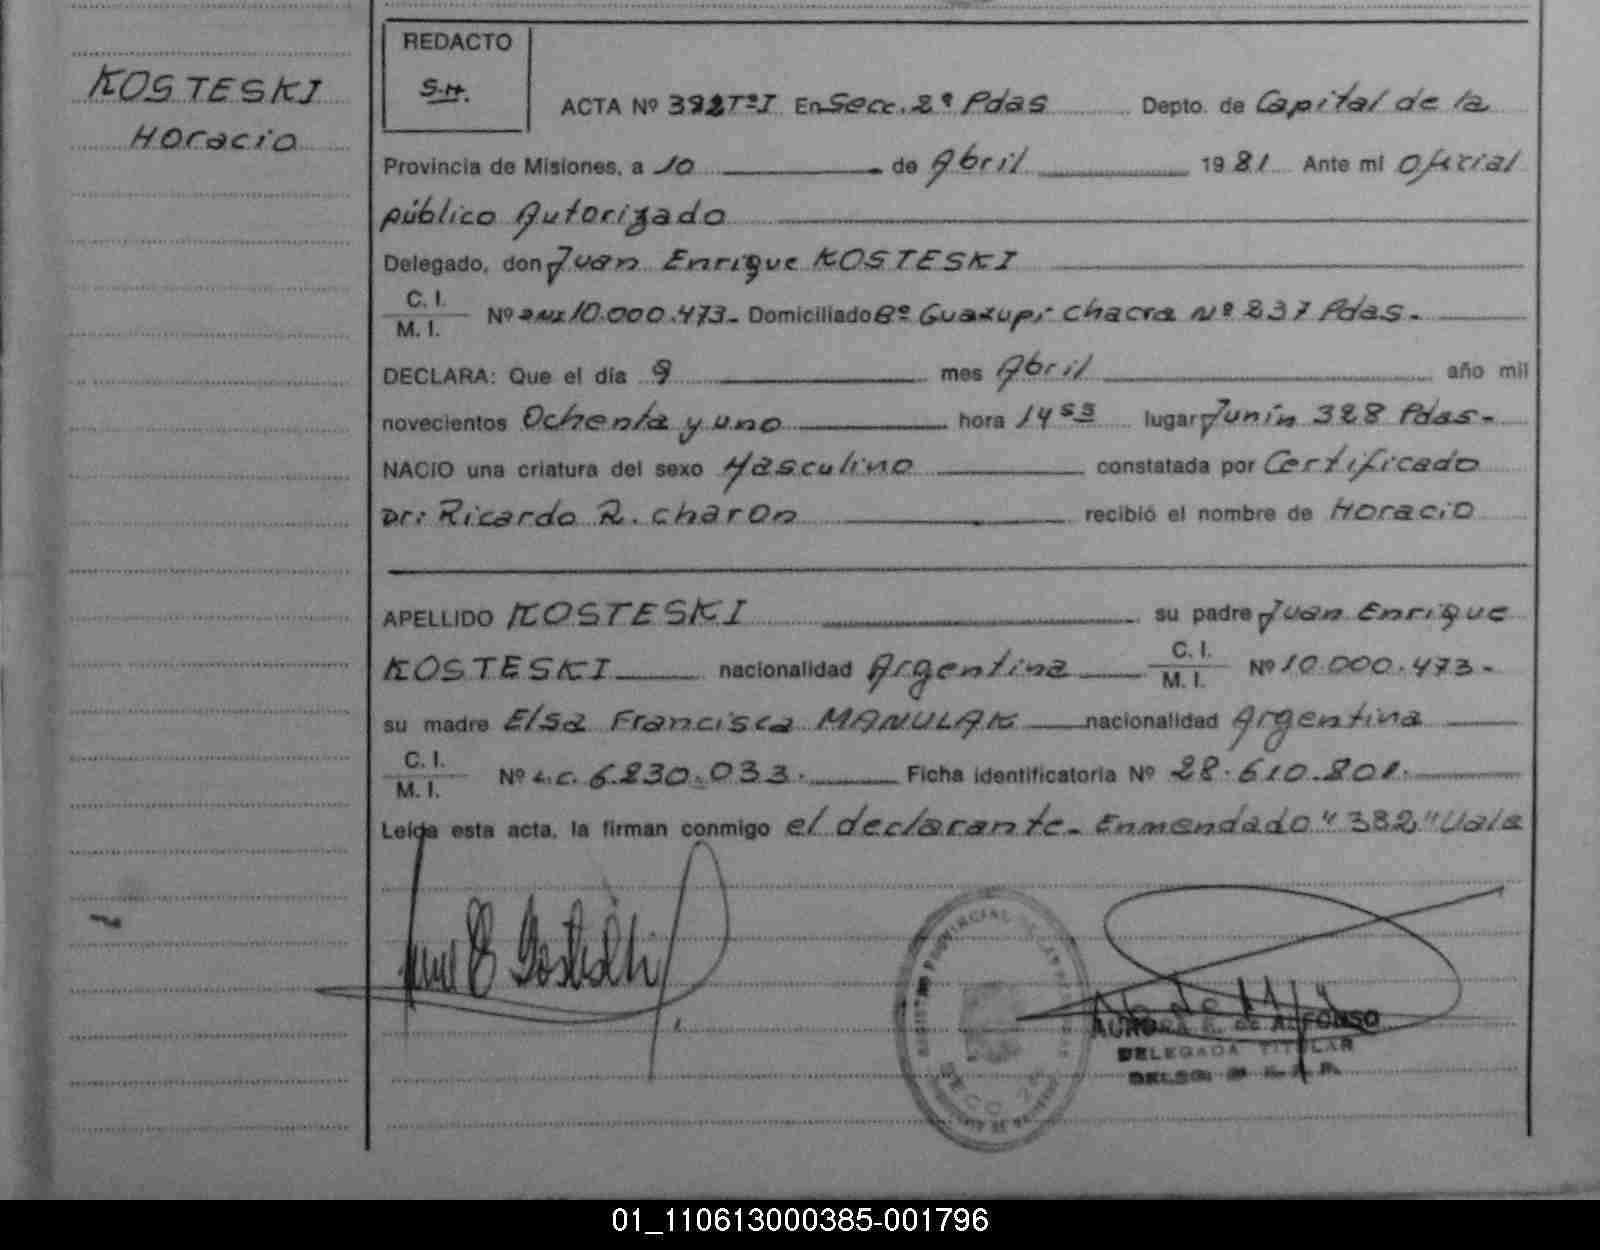 KOSTESKI
Horacio
REDACTO
S.H.
ACTA Nº 382 Tº I En Secc. 2ª Pdas Depto. de Capital de la
Provincia de Misiones, a 10 de Abril 1981 Ante mi Oficial
público Autorizado
Delegado, don Juan Enrique KOSTESKI
C. I.
M. I. Nº DNI 10.000.473.- Domiciliado Bº Guazupi chacra Nº 237 Pdas.-
DECLARA: Que el día 9 mes Abril año mil
novecientos Ochenta y uno hora 14 55 lugar Junín 328 Pdas.-
NACIO una criatura del sexo Masculino constatada por Certificado
Dr: Ricardo R. charon recibió el nombre de Horacio
APELLIDO KOSTESKI su padre Juan Enrique
KOSTESKI nacionalidad Argentina C. I. M. I. Nº 10.000.473.-
su madre Elsa Francisca MANULAK nacionalidad Argentina
C. I.
M. I. Nº L.C. 6.230.033. Ficha identificatoria Nº 28.610.201.
Leída esta acta, la firman conmigo el declarante.- Enmendado "382" Vale
REGISTRO PROVINCIAL DE LAS PERSONAS
SECC. 2ª
AURORA E. de ALFONSO
DELEGADA TITULAR
01_110613000385-001796